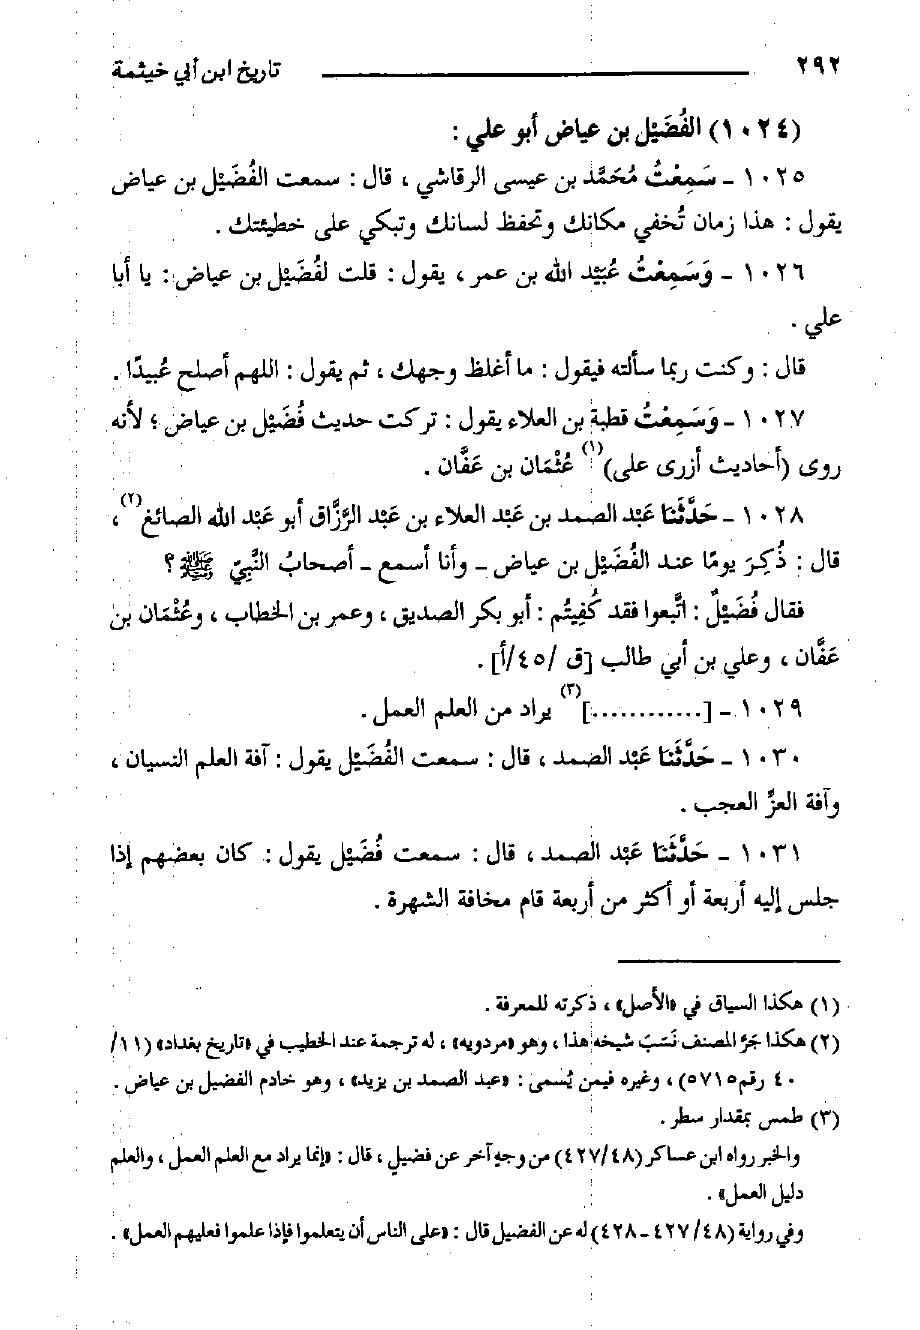 ٢٩٢ تاريخ ابن أبي خيثمة
(١٠٢٤) الفُضَيْل بن عياض أبو علي :
١٠٢٥ ـ سَمِعْتُ مُحَمَّد بن عيسى الرقاشي ، قال : سمعت الفُضَيْل بن عياض
يقول : هذا زمان تُخفي مكانك وتحفظ لسانك وتبكي على خطيئتك .
١٠٢٦ ـ وَسَمِعْتُ عُبَيْد الله بن عمر ، يقول : قلت لفُضَيْل بن عياض : يا أبا
علي .
قال : وكنت ربما سألته فيقول : ما أغلظ وجهك ، ثم يقول : اللهم أصلح عُبيدًا .
١٠٢٧ ـ وَسَمِعْتُ قطبة بن العلاء يقول : تركت حديث فُضَيْل بن عياض ؛ لأنه
روى (أحاديث أزرى على)(١) عُثْمَان بن عَفَّان .
١٠٢٨ ـ حَدَّثَنَا عَبْد الصمد بن عَبْد العلاء بن عَبْد الرَّزَّاق أبو عَبْد الله الصائغ(٢) ،
قال : ذُكِرَ يومًا عند الفُضَيْل بن عياض ـ وأنا أسمع ـ أصحابُ النَّبِيّ ﷺ ؟
فقال فُضَيْلٌ : اتَّبعوا فقد كُفِيتُم : أبو بكر الصديق ، وعمر بن الخطاب ، وعُثْمَان بن
عَفَّان ، وعلي بن أبي طالب [ق /٤٥/أ] .
١٠٢٩ ـ [............](٣) يراد من العلم العمل .
١٠٣٠ ـ حَدَّثَنَا عَبْد الصمد ، قال : سمعت الفُضَيْل يقول : آفة العلم النسيان ،
وآفة العزِّ العجب .
١٠٣١ ـ حَدَّثَنَا عَبْد الصمد ، قال : سمعت فُضَيْل يقول : كان بعضهم إذا
جلس إليه أربعة أو أكثر من أربعة قام مخافة الشهرة .
(١) هكذا السياق في «الأصل» ، ذكرته للمعرفة .
(٢) هكذا جَرَّ المصنف نَسَبَ شيخه هذا ، وهو «مردويه» ، له ترجمة عند الخطيب في «تاريخ بغداد» (١١/
٤٠ رقم٥٧١٥) ، وغيره فيمن يُسمى : «عبد الصمد بن يزيد» ، وهو خادم الفضيل بن عياض .
(٣) طمس بمقدار سطر .
والخبر رواه ابن عساكر (٤٨/ ٤٢٧) من وجهٍ آخر عن فضيلٍ ، قال : «إنما يراد مع العلم العمل ، والعلم
دليل العمل» .
وفي رواية (٤٨/ ٤٢٧ ـ ٤٢٨) له عن الفضيل قال : «على الناس أن يتعلموا فإذا علموا فعليهم العمل» .